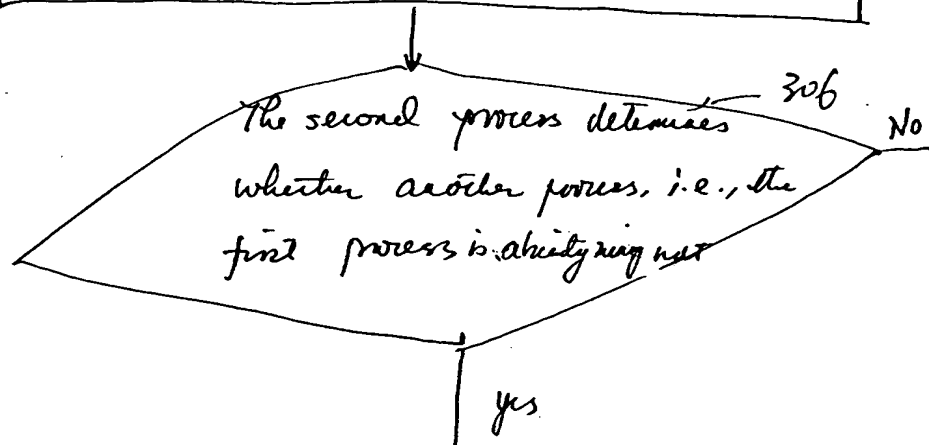 306
The second process determines
No
whether another process, i.e., the
first process is already
yes